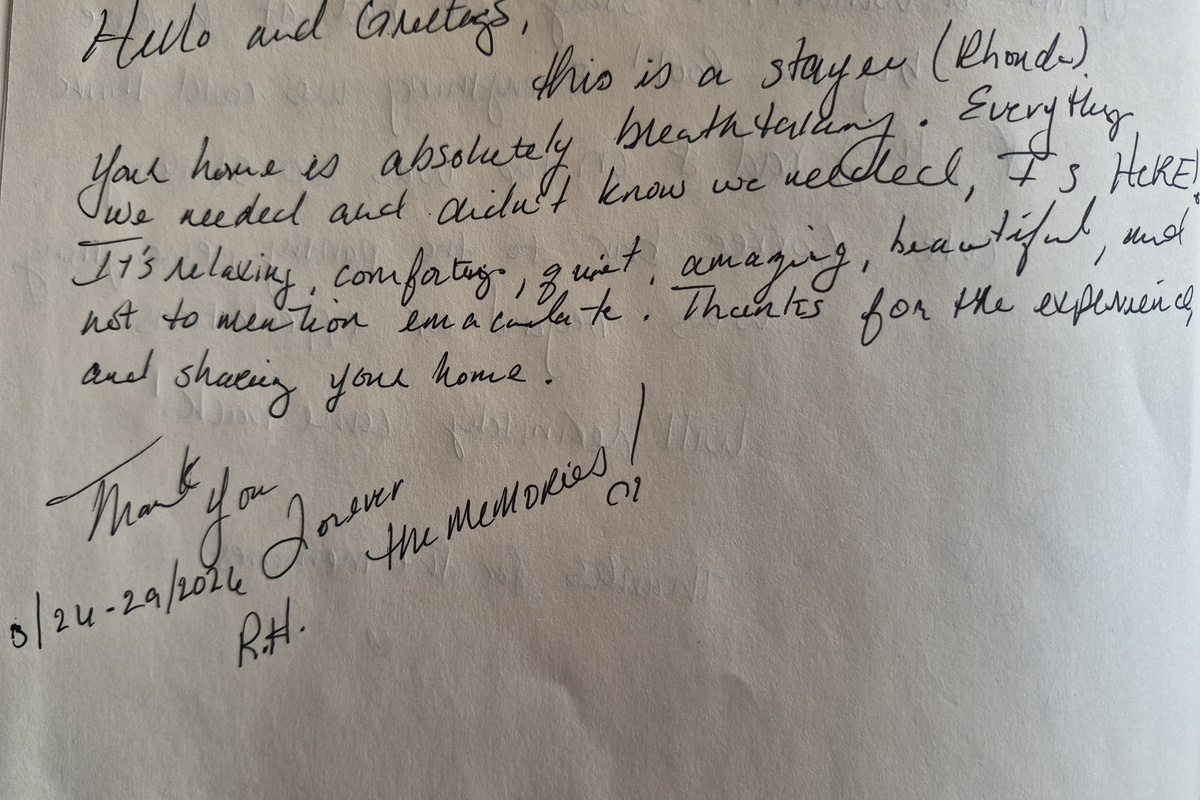 Hello and Greetings,
this is a stayer (Rhonda).
Your home is absolutely breathtaking. Everything
we needed and didn't know we needed, It's HERE!
It's relaxing, comforting, quiet, amazing, beautiful, and
not to mention emaculate. Thanks for the experience,
and sharing your home.
Thank you
forever
the MeMORies!
3/24-29/2024
R.H.